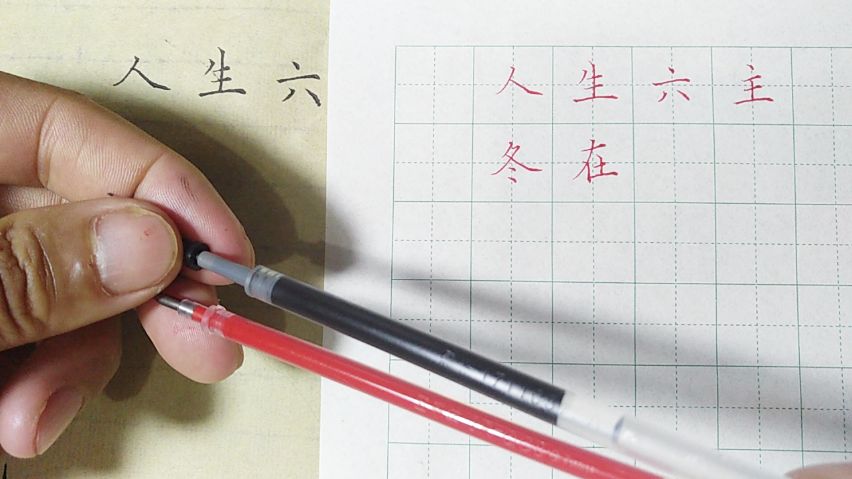 人生六
人生六主
冬在